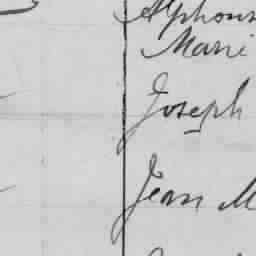 Alphons
Marie
Joseph
Jean M